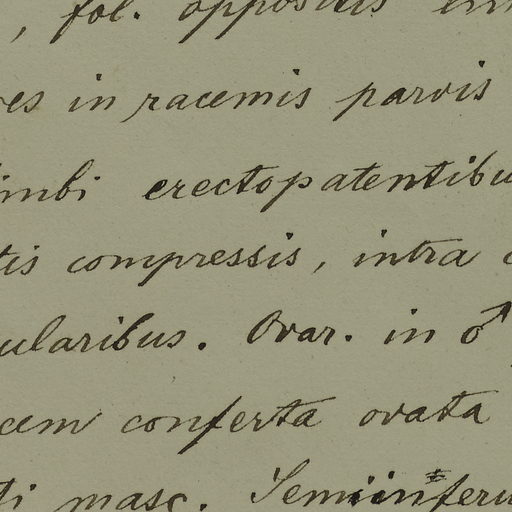 , fol. oppositis
es in racemis parvis
imbi erectopatentibu
tis compressis, intra
ularibus. Ovar. in ♂
cem conferta ovata
ti masc. Semiinferu